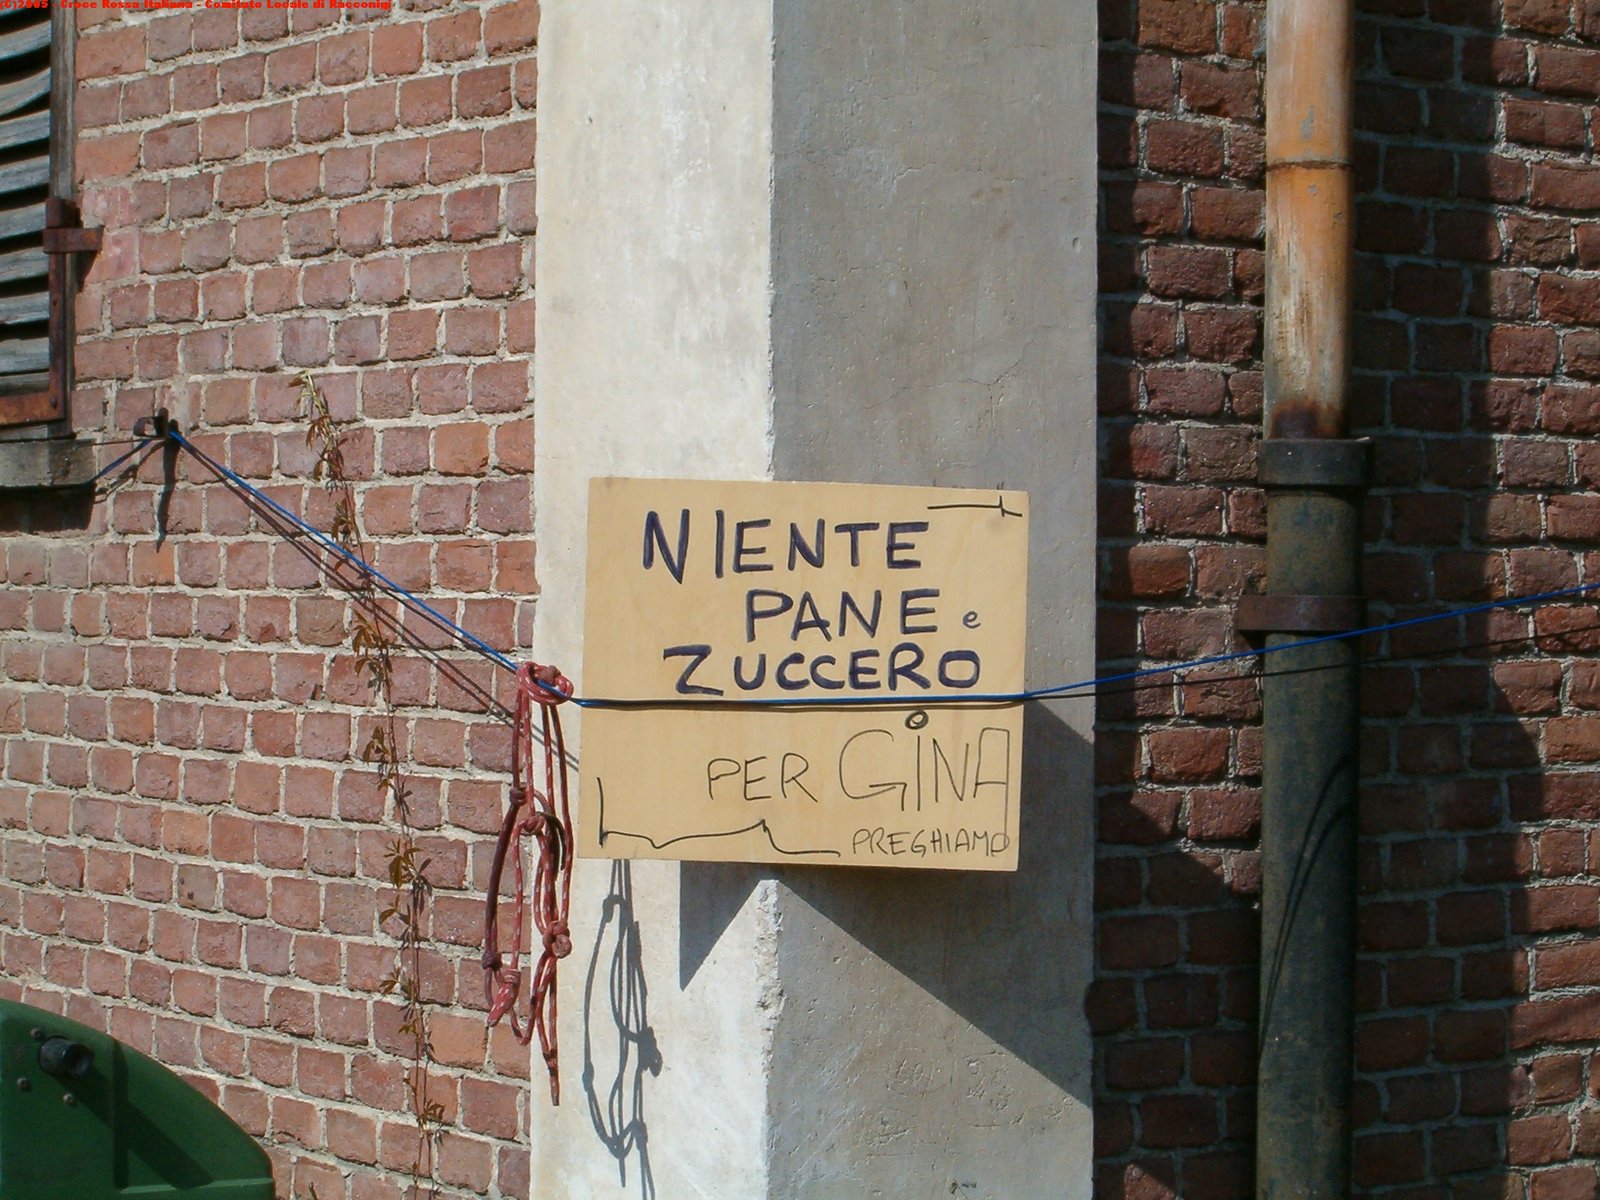 (C)2005 - Croce Rossa Italiana - Comitato Locale di Racconigi
NIENTE
PANE e
ZUCCERO
PER GiNA
PREGHIAMO